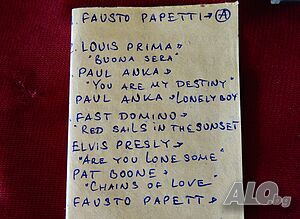 . FAUSTO PAPETTI→ Ⓐ
. LOUIS PRIMA→
"BUONA SERA"
PAUL ANKA→
"YOU ARE MY DESTINY"
PAUL ANKA→ LONELY BOY
. FAST DOMINO→
"RED SAILS IN THE SUNSET
ELVIS PRESLY→
"ARE YOU LONE SOME"
PAT BOONE→
"CHAINS OF LOVE"
FAUSTO PAPETT→
ALO.bg